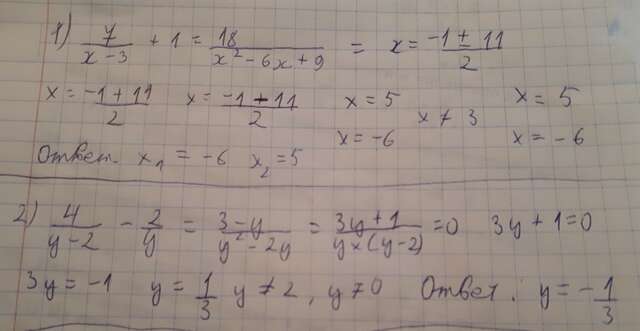 1) 7/(x-3) + 1 = 18/(x² - 6x + 9) = x = (-1 ± 11)/2
x = (-1 + 11)/2 x = (-1 - 11)/2 x = 5 x = -6 x ≠ 3 x = 5 x = -6
Ответ. x₁ = -6 x₂ = 5
2) 4/(y-2) - 2/y = (3-y)/(y² - 2y) = (3y+1)/(y×(y-2)) = 0 3y + 1 = 0
3y = -1 y = 1/3 y ≠ 2, y ≠ 0 Ответ: y = -1/3